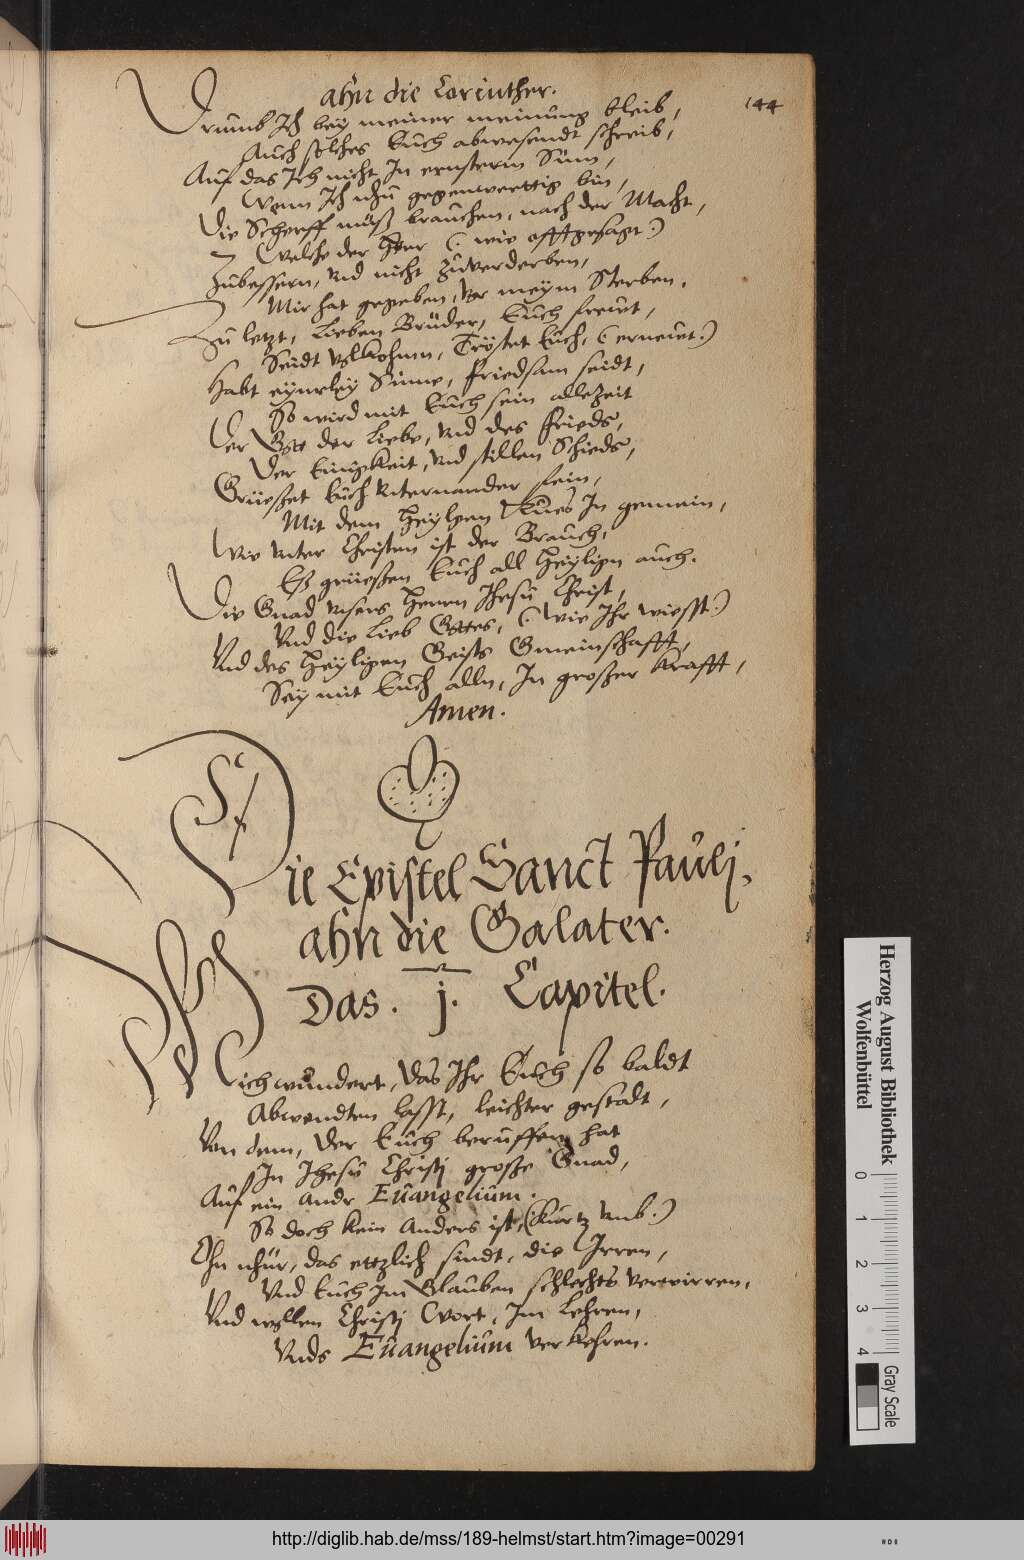 ahn die Corinther.
144
Drumb Ich bey meiner meinung bleib,
Auch solches Euch abwesendt schreib,
Auf das Ich nicht In ernsterm Sinn,
Wenn Ich nhu gegenwerttig bin,
Die Scherff muß brauchen, nach der Macht,
Welche der Herr (: wie offtgesagt:)
Zubessern, vnd nicht zuverderben,
Mir hat gegeben, vor meym Sterben.
Zu letzt, lieben Brüder, Euch freuet,
Seidt vollkohmn, Tröstet Euch, (: erneuet:)
Habt eynerley Sinne, friedsam seidt,
So wird mit Euch sein allezeit
Der Gott der Liebe, vnd des frieds,
Der Einigkeit, vnd stillen Schieds,
Grüeßet Euch vnternander fein,
Mit dem Heylgen Kues In gemein,
Wie vnter Christen ist der Brauch,
Eß grüeßen Euch all Heyligen auch.
Die Gnad vnsers Herrn Jhesu Christ,
Vnd die lieb Gottes, (: wie Ihr wiesst:)
Vnd des Heyligen Geists Gmeinschafft,
Sey mit Euch alln, In großer Krafft,
Amen.
Die Epistel Sanct Paulj,
ahn die Galater.
Das . j. Capitel.
Mich wundert, das Ihr Euch so baldt
Abwendten lasst, leichter gestadt,
Von dem, der Euch beruffen hat
In Jhesu Christj große Gnad,
Auf ein andr Euangelium.
So doch kein anders ist, (: kurtz vmb:)
Ohn nhur, das ettzlich sindt, die Irren,
Vnd Euch im Glauben schlechts verwirren,
Vnd wollen Christj Wort, Im Lehren,
Vnds Euangelium verkehren.
Herzog August Bibliothek
Wolfenbüttel
0 1 2 3 4
Gray Scale
http://diglib.hab.de/mss/189-helmst/start.htm?image=00291